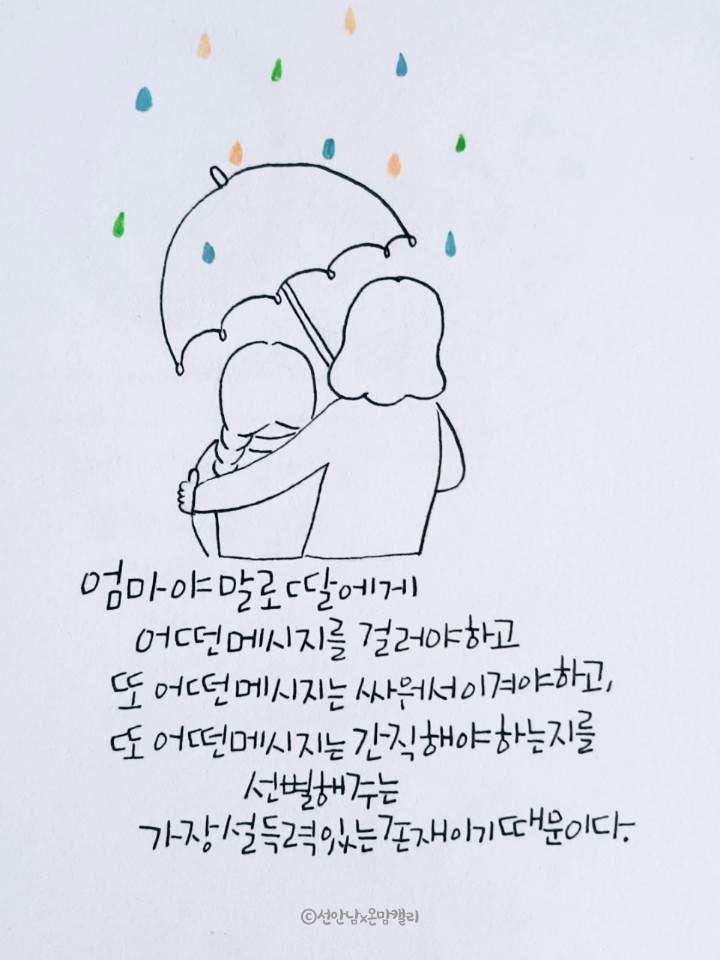 엄마야말로 딸에게
어떤 메시지를 걸러야하고
또 어떤 메시지는 싸워서 이겨야하고,
또 어떤 메시지는 간직해야하는지를
선별해주는
가장 설득력있는 존재이기 때문이다.
©선안남x온맘캘리